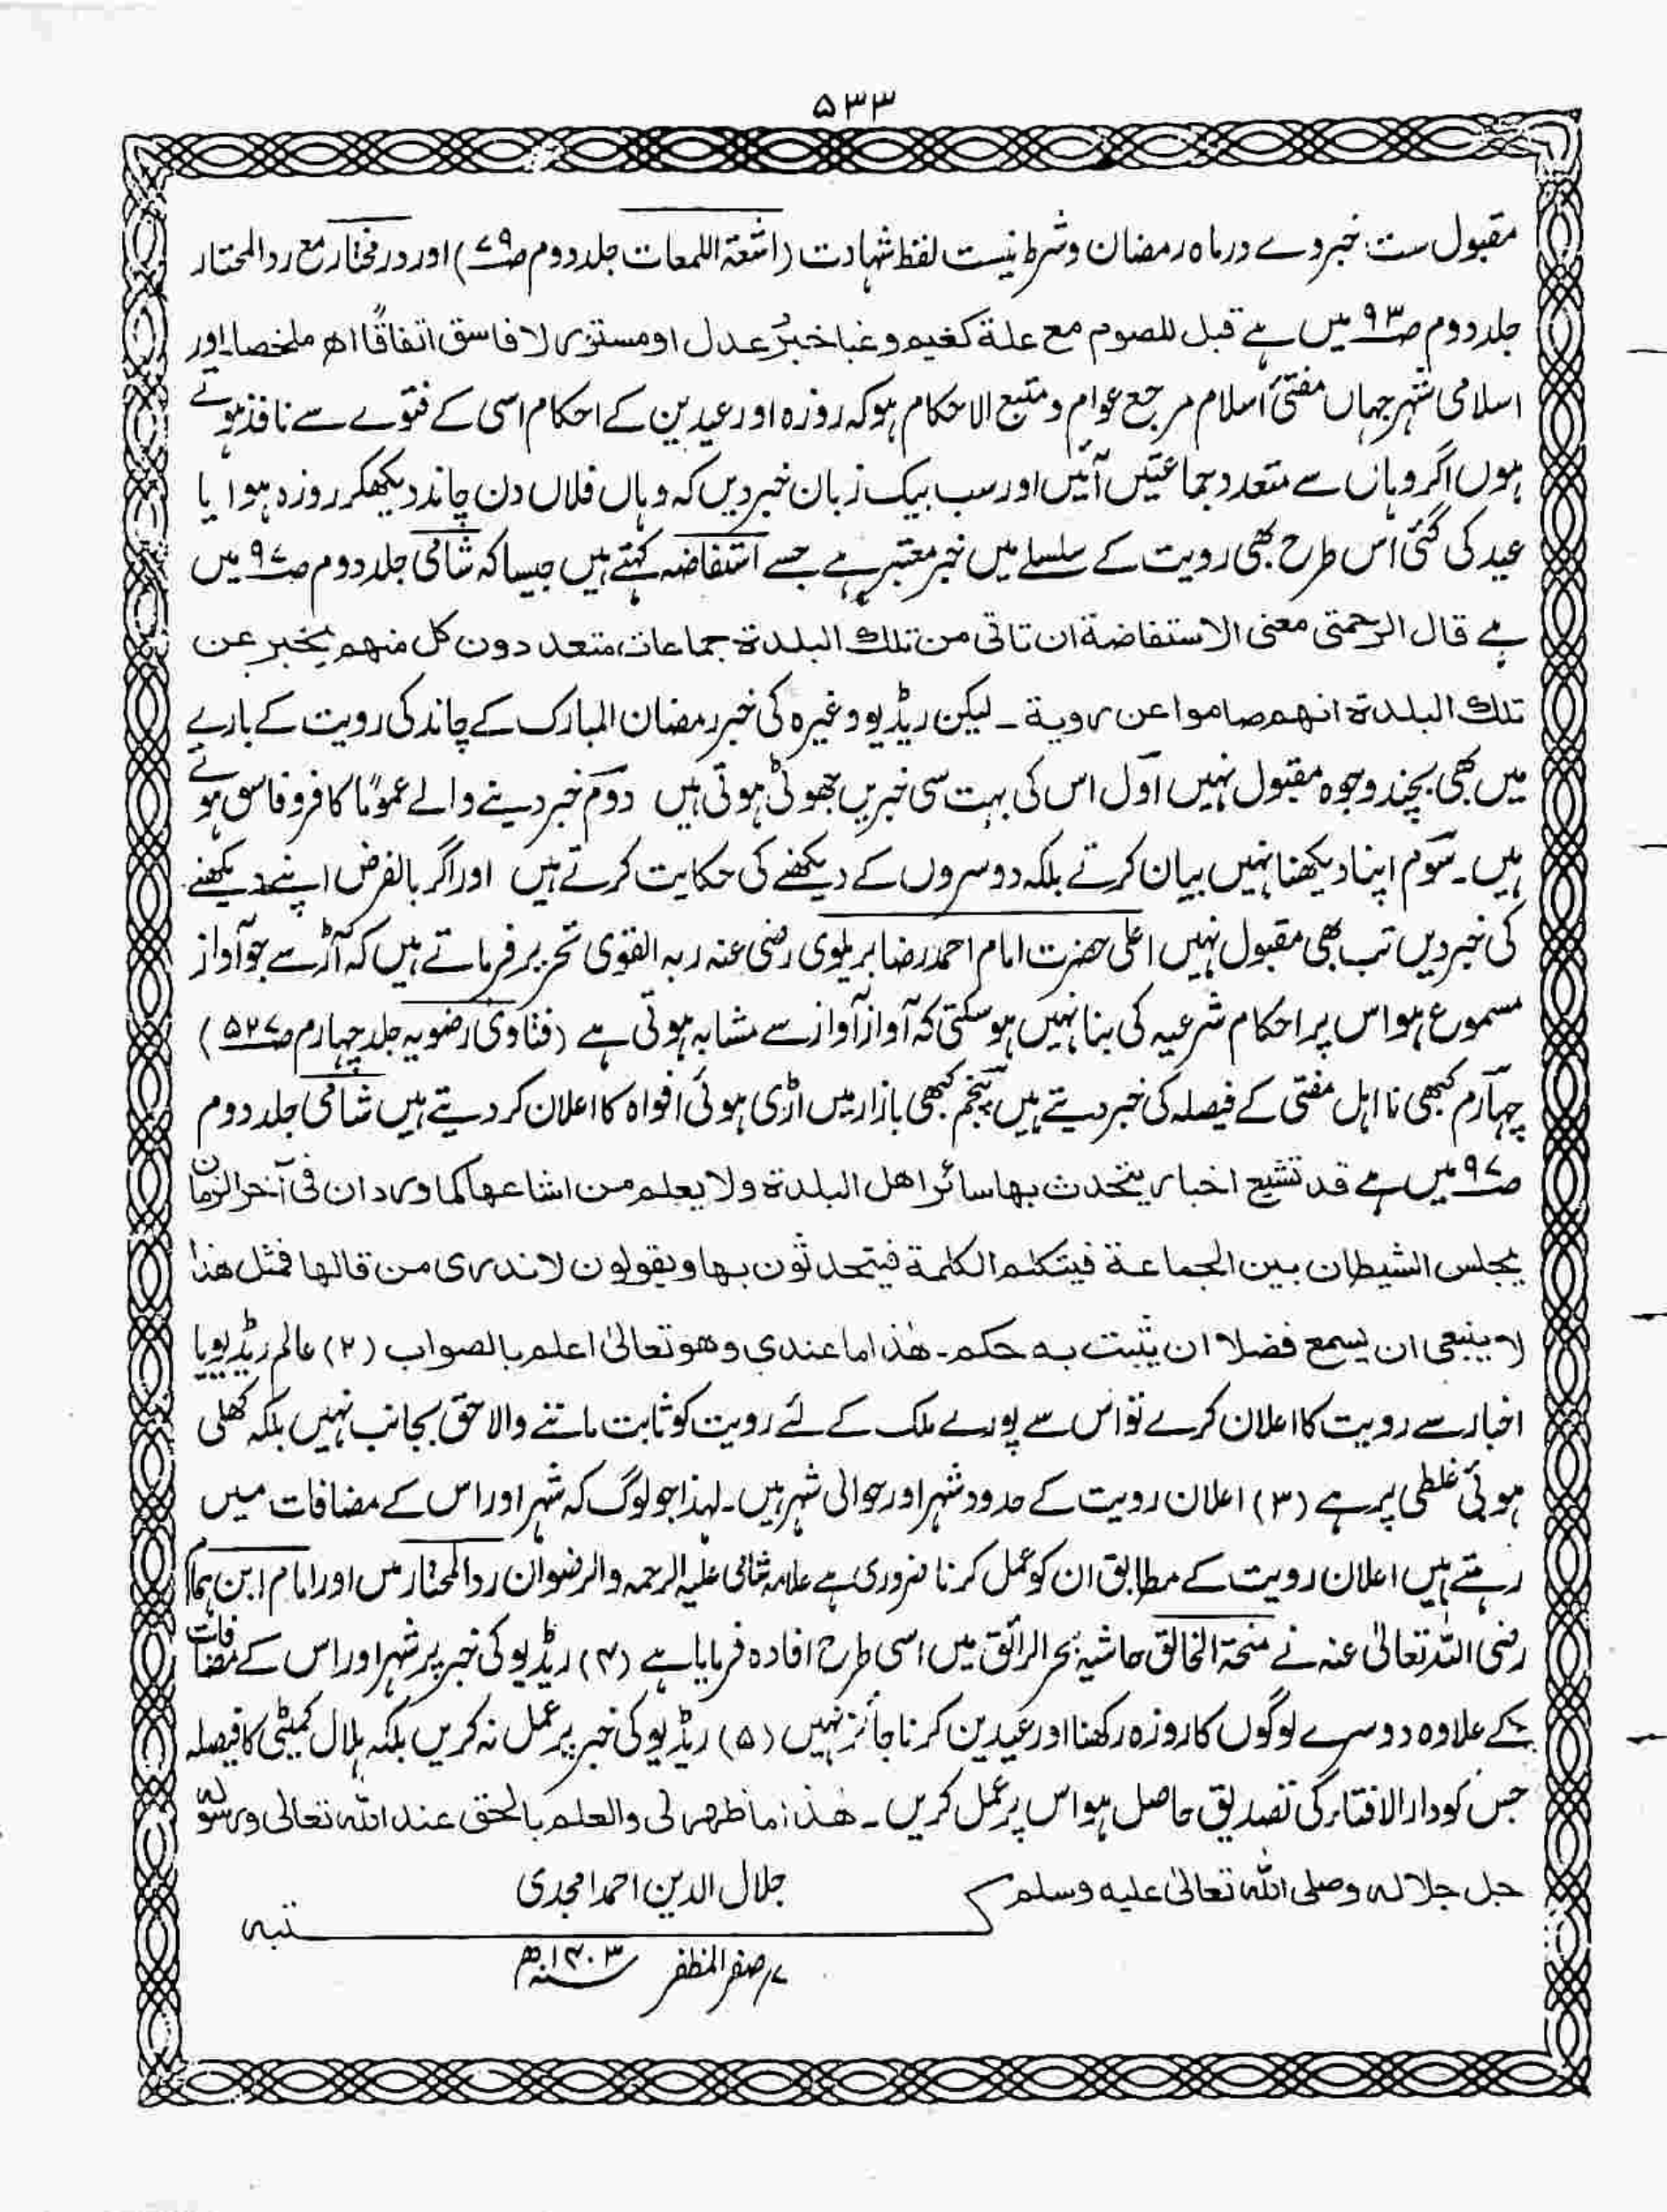 ۵۳۳
مقبول ست خبر وے در ماہ رمضان و شرط نیست لفظ شہادت (اشعۃ اللمعات جلد دوم ص۷۹) اور در مختار مع رد المحتار
جلد دوم ص۹۳ میں ہے قبل للصوم مع علة کغیم وغبا خبرُ عدل او مستور لا فاسق اتفاقًا اھ ملخصا۔ اور
اسلامی شہر جہاں مفتیٔ اسلام مرجع عوام و متبع الاحکام ہو کہ روزہ اور عیدین کے احکام اسی کے فتوے سے نافذ ہوتے
ہوں اگر وہاں سے متعدد جماعتیں آئیں اور سب بیک زبان خبر دیں کہ وہاں فلاں دن چاند دیکھکر روزہ ہوا یا
عید کی گئی اس طرح بھی رویت کے سلسلے میں خبر معتبر ہے جسے استفاضہ کہتے ہیں جیسا کہ شامی جلد دوم ص۹۷ میں
ہے قال الرحمتی معنی الاستفاضة ان تاتی من تلك البلدة جماعات متعددون کل منهم یخبر عن
تلك البلدة انهم صاموا عن رویة ۔ لیکن ریڈیو وغیرہ کی خبر رمضان المبارک کے چاند کی رویت کے بارے
میں بھی بچند وجوہ مقبول نہیں اوّل اس کی بہت سی خبریں جھوٹی ہوتی ہیں دوم خبر دینے والے عموماً کافر و فاسق ہوتے
ہیں۔ سوم اپنا دیکھنا نہیں بیان کرتے بلکہ دوسروں کے دیکھنے کی حکایت کرتے ہیں اور اگر بالفرض اپنے دیکھنے
کی خبر دیں تب بھی مقبول نہیں اعلی حضرت امام احمد رضا بریلوی رضی عنہ ربہ القوی تحریر فرماتے ہیں کہ آڑ سے جو آواز
مسموع ہو اس پر احکام شرعیہ کی بنا نہیں ہو سکتی کہ آواز آواز سے مشابہ ہوتی ہے (فتاویٰ رضویہ جلد چہارم ص۵۲۷)
چہارم کبھی نا اہل مفتی کے فیصلہ کی خبر دیتے ہیں پنجم کبھی بازار میں اڑی ہوئی افواہ کا اعلان کر دیتے ہیں شامی جلد دوم
ص۹۷ میں ہے قد تشیع اخبار یتحدث بها سائر اهل البلدة ولا یعلم من اشاعها کما ورد ان فی آخر الزمان
یجلس الشیطان بین الجماعة فیتکلم الکلمة فیتحدثون بها ویقولون لا ندری من قالها فمثل هذا
لا ینبغی ان یسمع فضلا ان یثبت به حکم۔ هٰذا ما عندی وهو تعالیٰ اعلم بالصواب (۲) عالم ریڈیو یا
اخبار سے رویت کا اعلان کرے تو اس سے پورے ملک کے لئے رویت کو ثابت ماننے والا حق بجانب نہیں بلکہ کھلی
ہوئی غلطی پر ہے (۳) اعلان رویت کے حدود شہر اور حوالی شہر ہیں۔ لہٰذا جو لوگ کہ شہر اور اس کے مضافات میں
رہتے ہیں اعلان رویت کے مطابق ان کو عمل کرنا ضروری ہے علامہ شامی علیہ الرحمہ والرضوان رد المحتار میں اور امام ابن ہمام
رضی اللہ تعالیٰ عنہ نے منحۃ الخالق حاشیہ بحر الرائق میں اسی طرح افادہ فرمایا ہے (۴) ریڈیو کی خبر پر شہر اور اس کے مضافات
کے علاوہ دوسرے لوگوں کا روزہ رکھنا اور عیدین کرنا جائز نہیں (۵) ریڈیو کی خبر پر عمل نہ کریں بلکہ ہلال کمیٹی کا فیصلہ
جس کو دار الافتاء کی تصدیق حاصل ہو اس پر عمل کریں۔ هٰذا ما ظهر لی والعلم بالحق عند الله تعالی ورسوله
جل جلاله وصلی الله تعالیٰ علیه وسلم
جلال الدین احمد امجدی
کتبہ
۷/ صفر المظفر ۱۴۰۳ھ